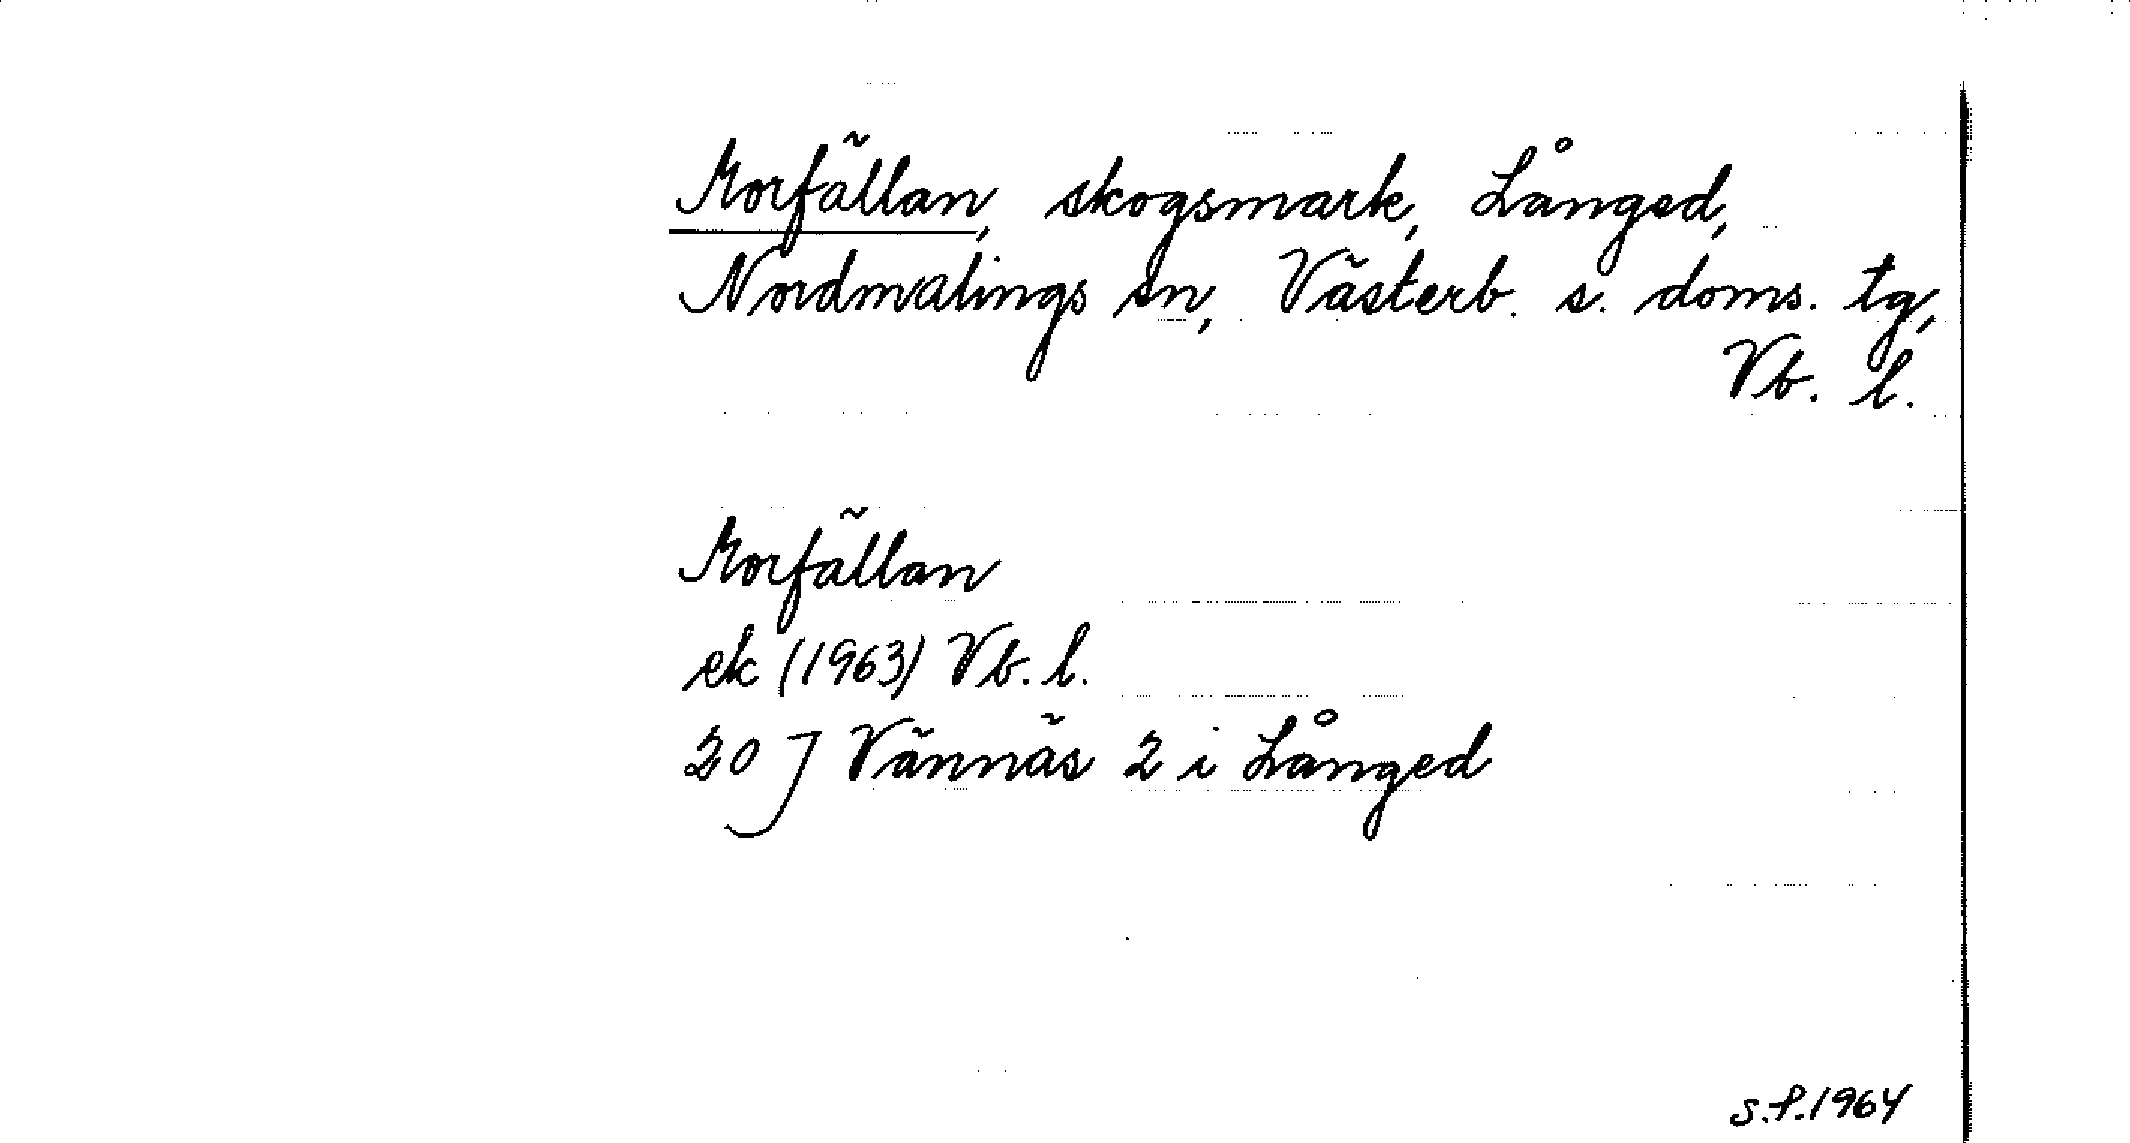 Morfällan, skogsmark, Långed,
Nordmalings sn, Västerb. s. doms. tg,
Vb. l.
Morfällan
ek (1963) Vb. l.
20 J Vännäs 2 i Långed
S.P. 1964